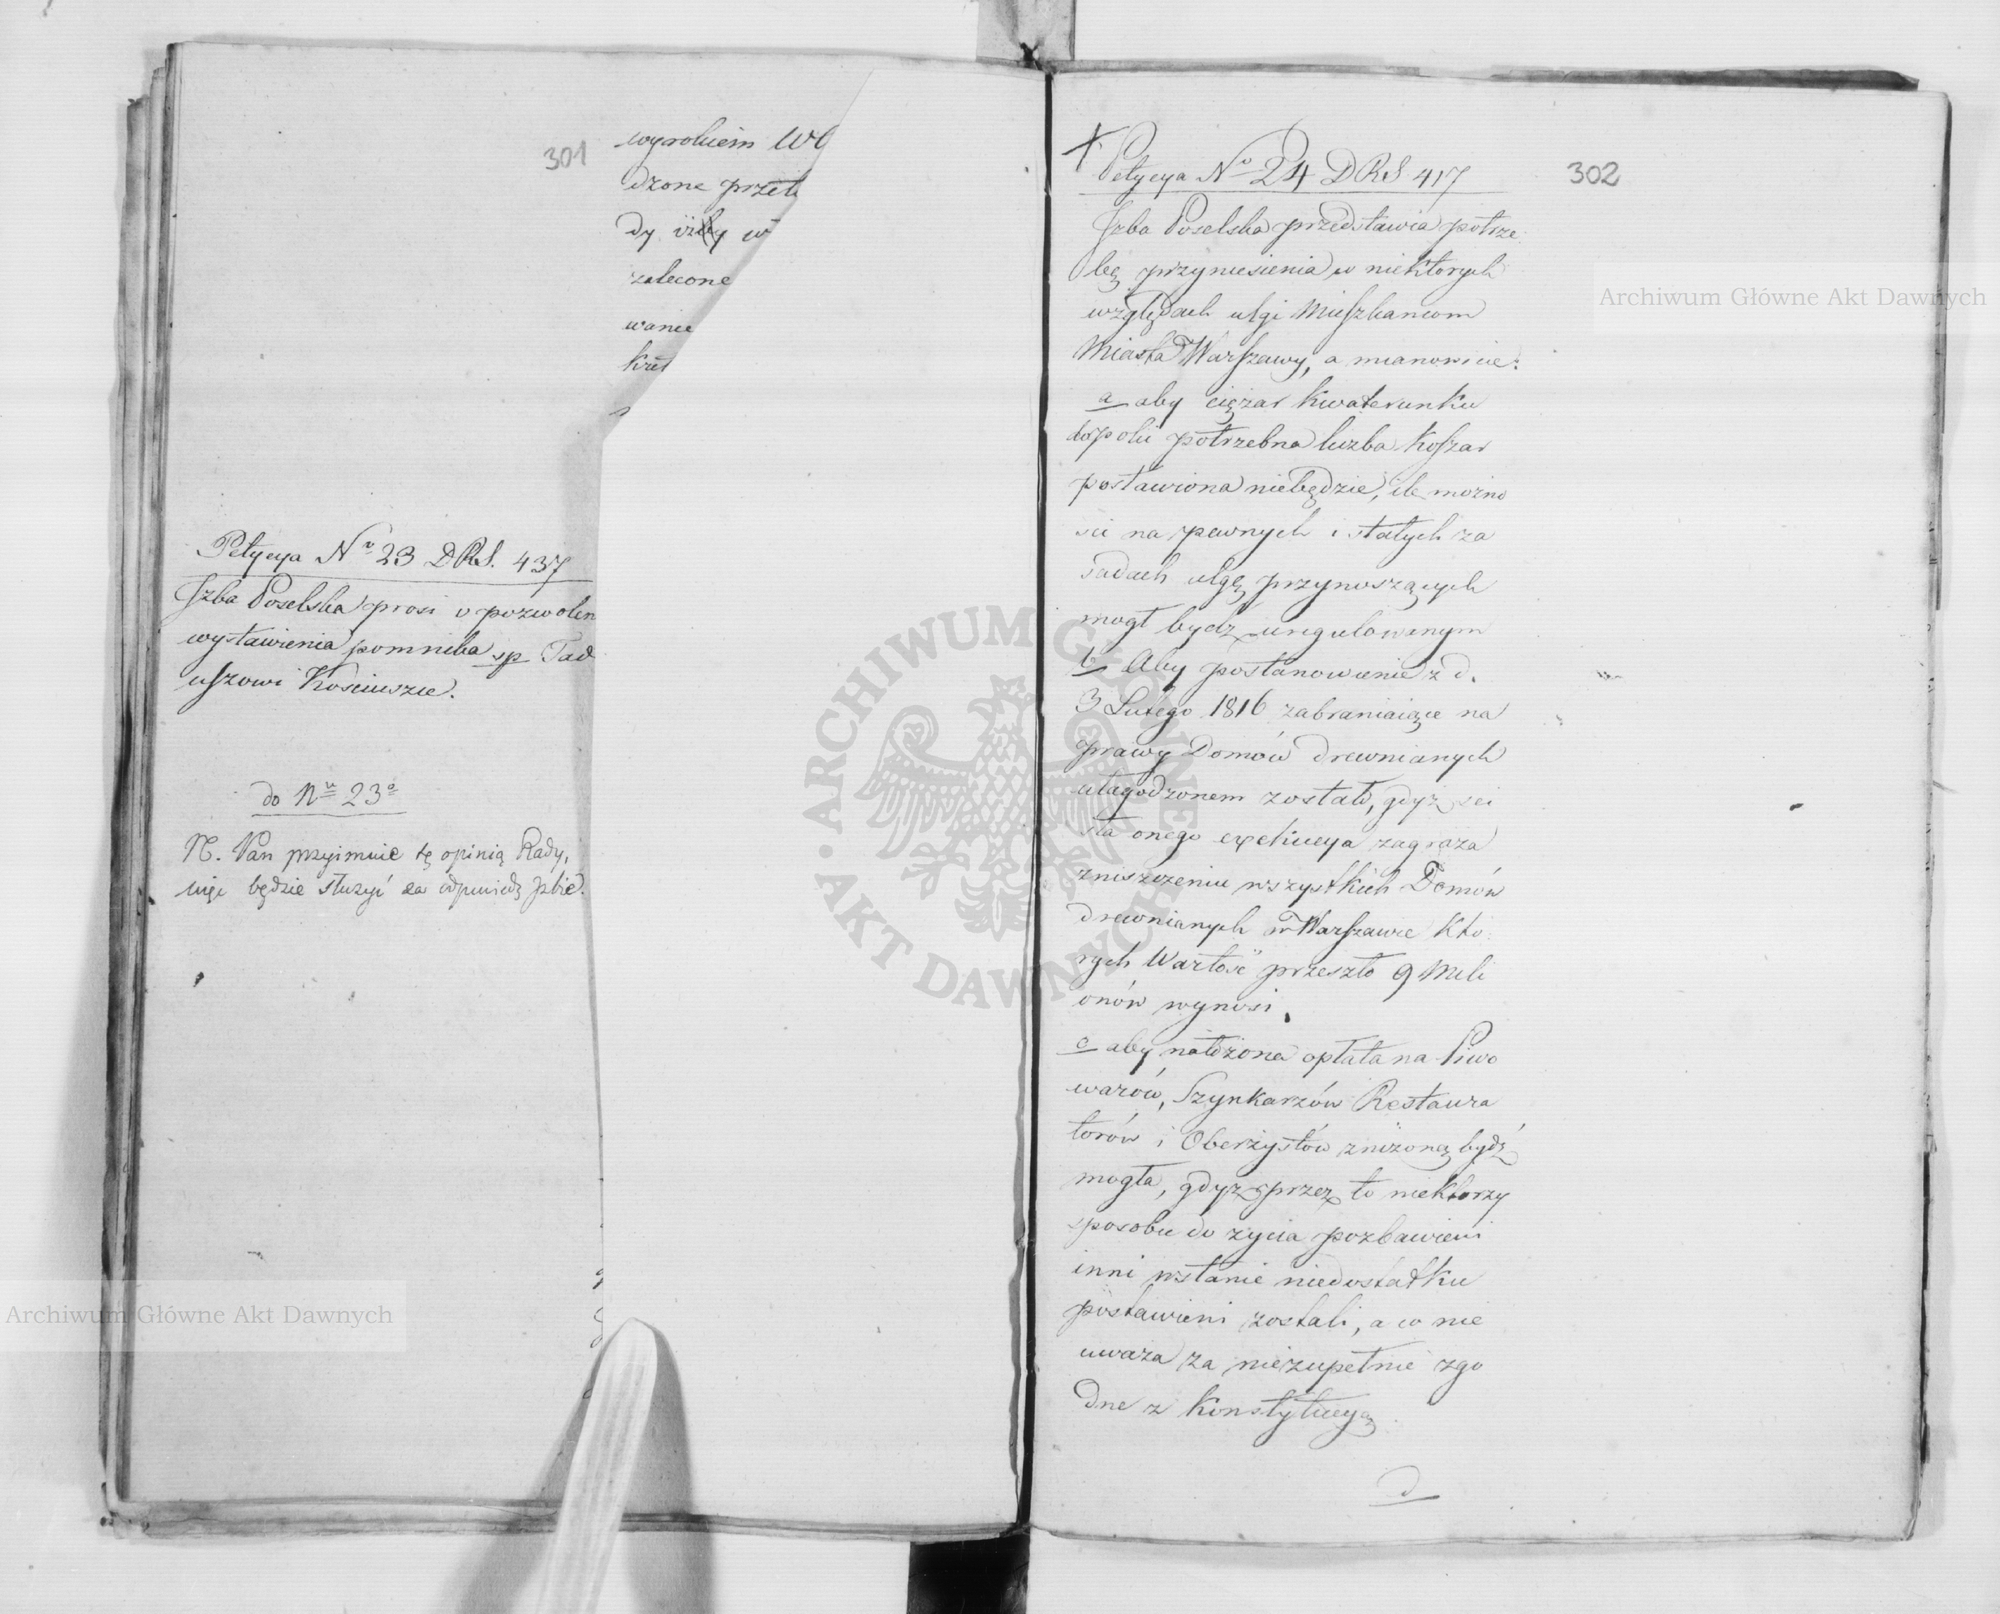 301
wyrokiem
dzone przet
dy izby w
zalecone
wanie
Petycya No 23 DRS. 437
Izba Poselska prosi o pozwolen
wystawienia pomnika sp Tad
uszowi Kosciuszce.
do No 23o
N. Pan przyimuie tę opinią Rady,
będzie służyć za odpowiedź Izbie.
302
Petycya No 24 DRS 417
Izba Poselska przedstawia potrze
bę przyniesienia w niektorych
względach ulgi Mieszkancom
Miasta Warszawy, a mianowicie:
a aby ciężar kwaterunku
dopoki potrzebna liczba Koszar
postawiona niebędzie, ile możno
sci na pewnych i stałych za
sadach ulgę przynoszących
mogł bydź uregulowanym
b Aby postanowienie z d.
3 Lutego 1816 zabraniaiące na
prawy Domów drewnianych
ułagodzonem zostało, gdyż sci
sła onego exekucya zagraża
zniszczeniu wszystkich Domów
drewnianych w Warszawie kto
rych Wartość przeszło 9 Mili
onów wynosi.
c aby nałożona opłata na Piwo
warów, Szynkarzów Restaura
torów i Oberżystów zniżoną bydź
mogła, gdyż przez to niektorzy
sposobu do życia pozbawieni
inni wstanie niedostatku
postawieni zostali, a co nie
uważa za niezupełnie zgo
dne z Konstytucyą
d
Archiwum Główne Akt Dawnych
Archiwum Główne Akt Dawnych
ARCHIWUM GŁÓWNE AKT DAWNYCH